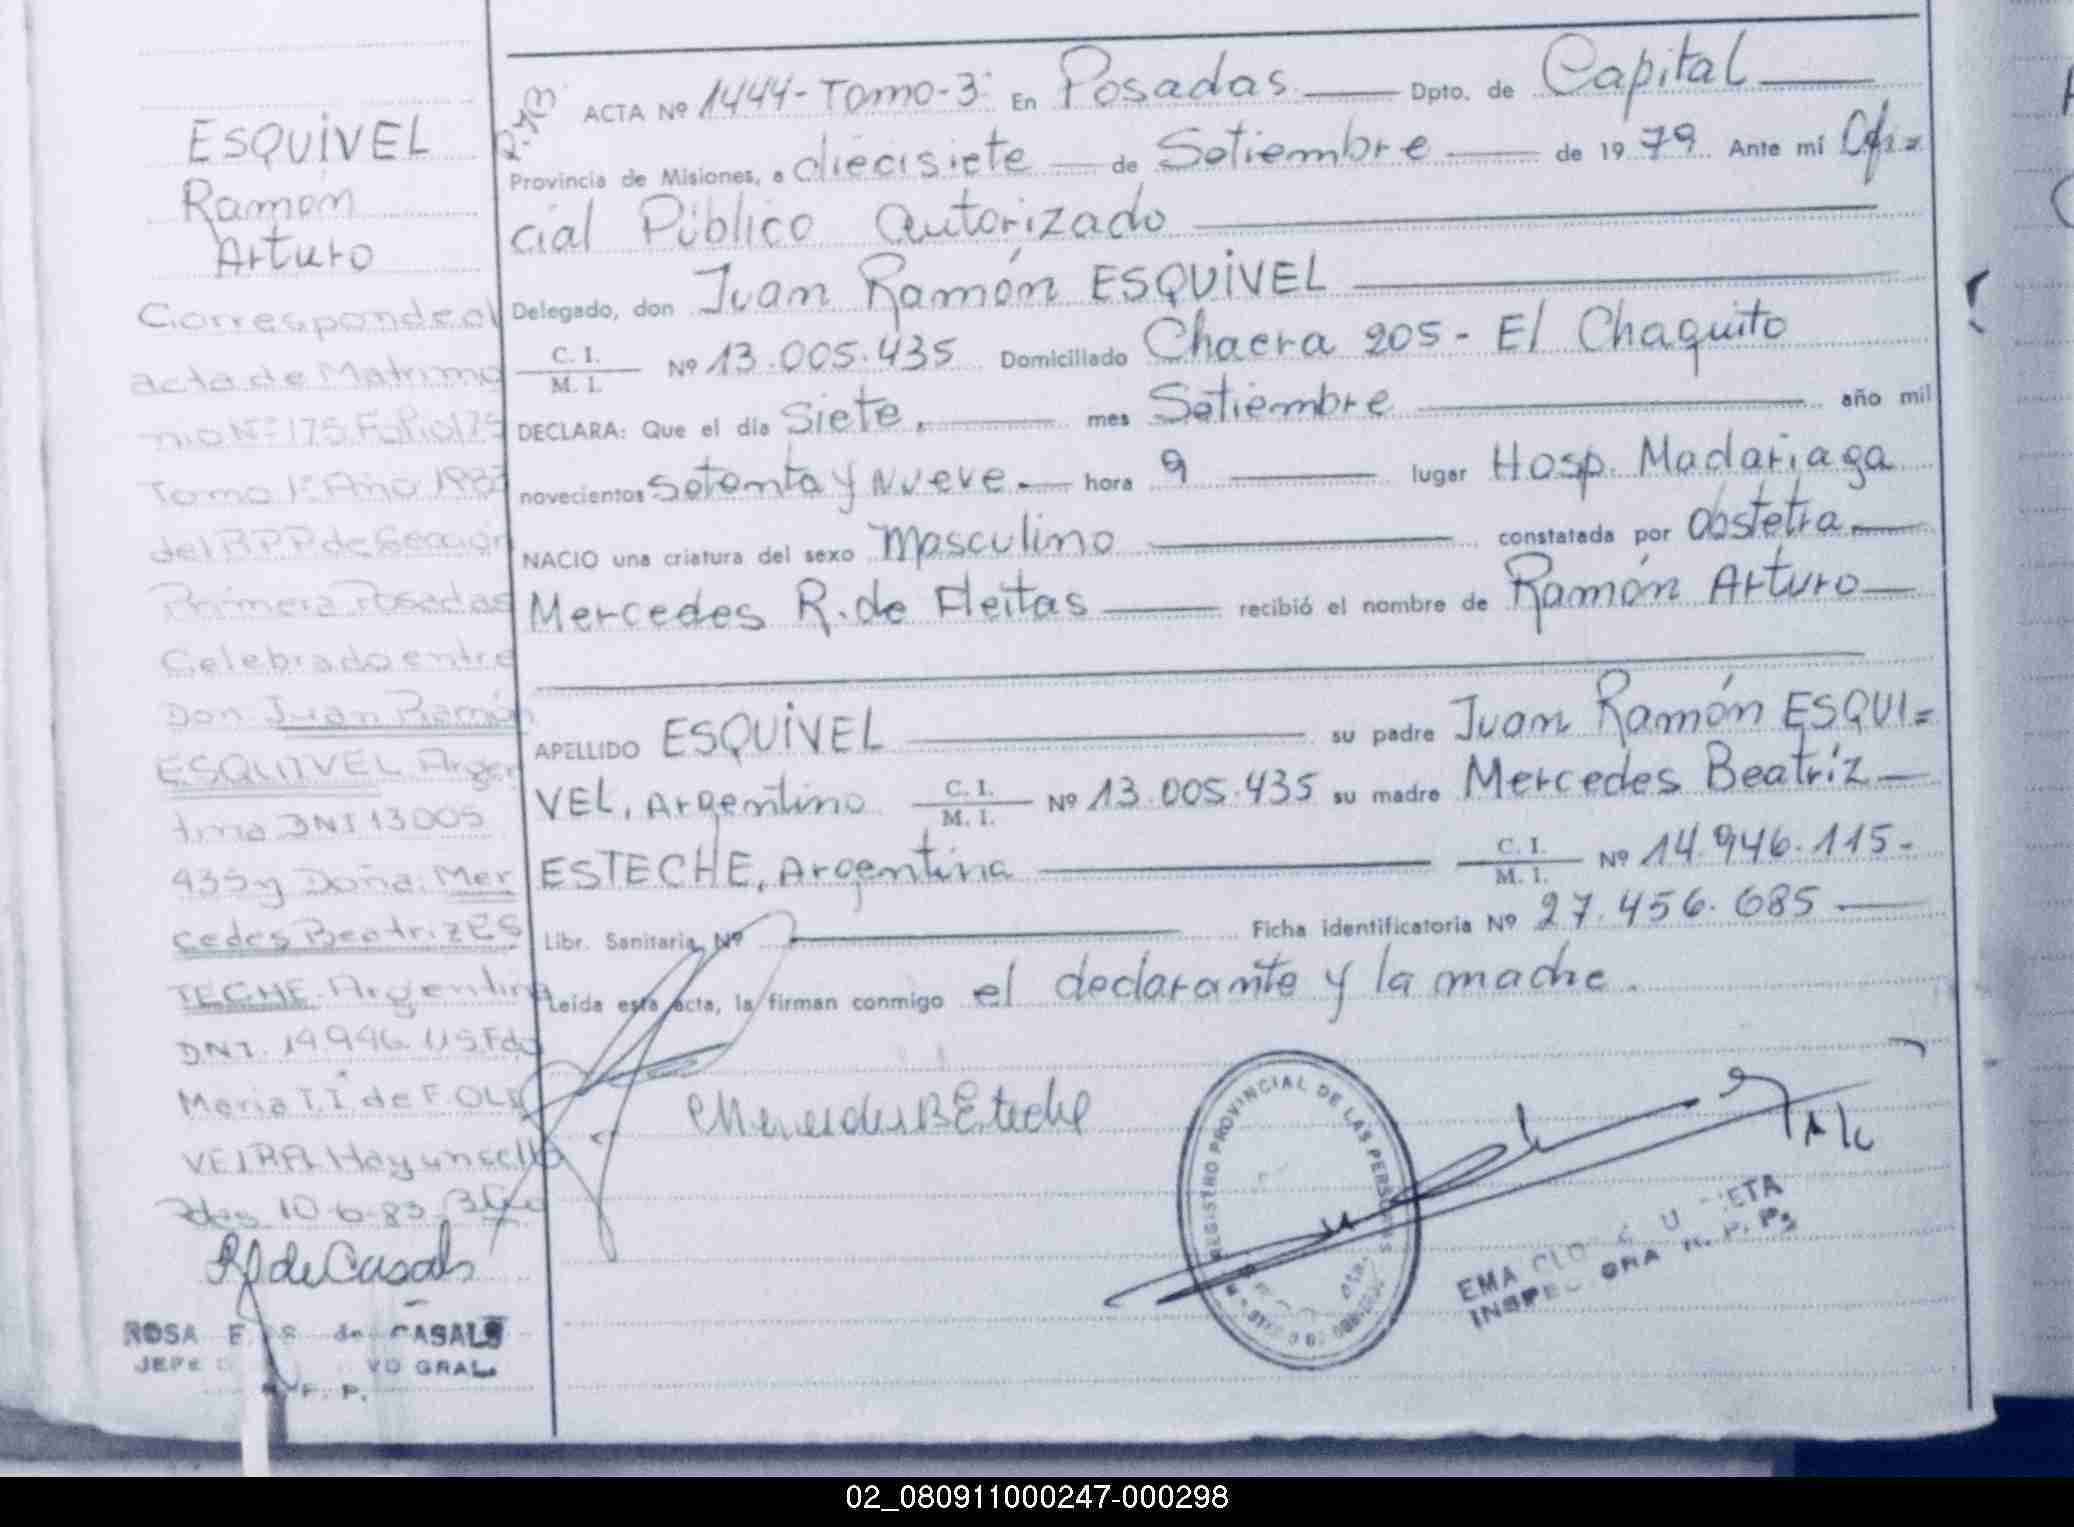 ESQUIVEL
Ramón
Arturo
Corresponde al
acta de Matrimo
nio Nº 175. Folio 175
Tomo 1º Año 1983
del RPP de Sección
Primera Posadas
Celebrado entre
Don Juan Ramón
ESQUIVEL Argen
tino DNI 13005
435 y Doña Mer
cedes Beatriz ES
TECHE Argentina
DNI. 14946 115. Fdo
Maria T. I de F. OLI
VEIRA Hay un sello
Pdas 10-6-83
R de Casals
ROSA E. S de CASALS
JEFE VO GRAL.
F. P.
ACTA Nº 1444 - Tomo - 3º En Posadas Dpto. de Capital
Provincia de Misiones, a diecisiete de Setiembre de 1979. Ante mí Ofi=
cial Público Autorizado
Delegado, don Juan Ramón ESQUIVEL
C. I.
M. I. Nº 13.005.435 Domiciliado Chacra 205 - El Chaquito
DECLARA: Que el día Siete. mes Setiembre año mil
novecientos Setenta y Nueve. hora 9 lugar Hosp. Madariaga
NACIO una criatura del sexo Masculino constatada por Obstetra
Mercedes R. de Fleitas recibió el nombre de Ramón Arturo
APELLIDO ESQUIVEL su padre Juan Ramón ESQUI=
VEL, Argentino C. I.
M. I. Nº 13.005.435 su madre Mercedes Beatriz
ESTECHE, Argentina C. I.
M. I. Nº 14.946.115.
Libr. Sanitaria Nº Ficha identificatoria Nº 27.456.685
Leída esta acta, la firman conmigo el declarante y la madre.
Mercedes B Esteche
REGISTRO PROVINCIAL DE LAS PERSONAS
EMA
02_080911000247-000298